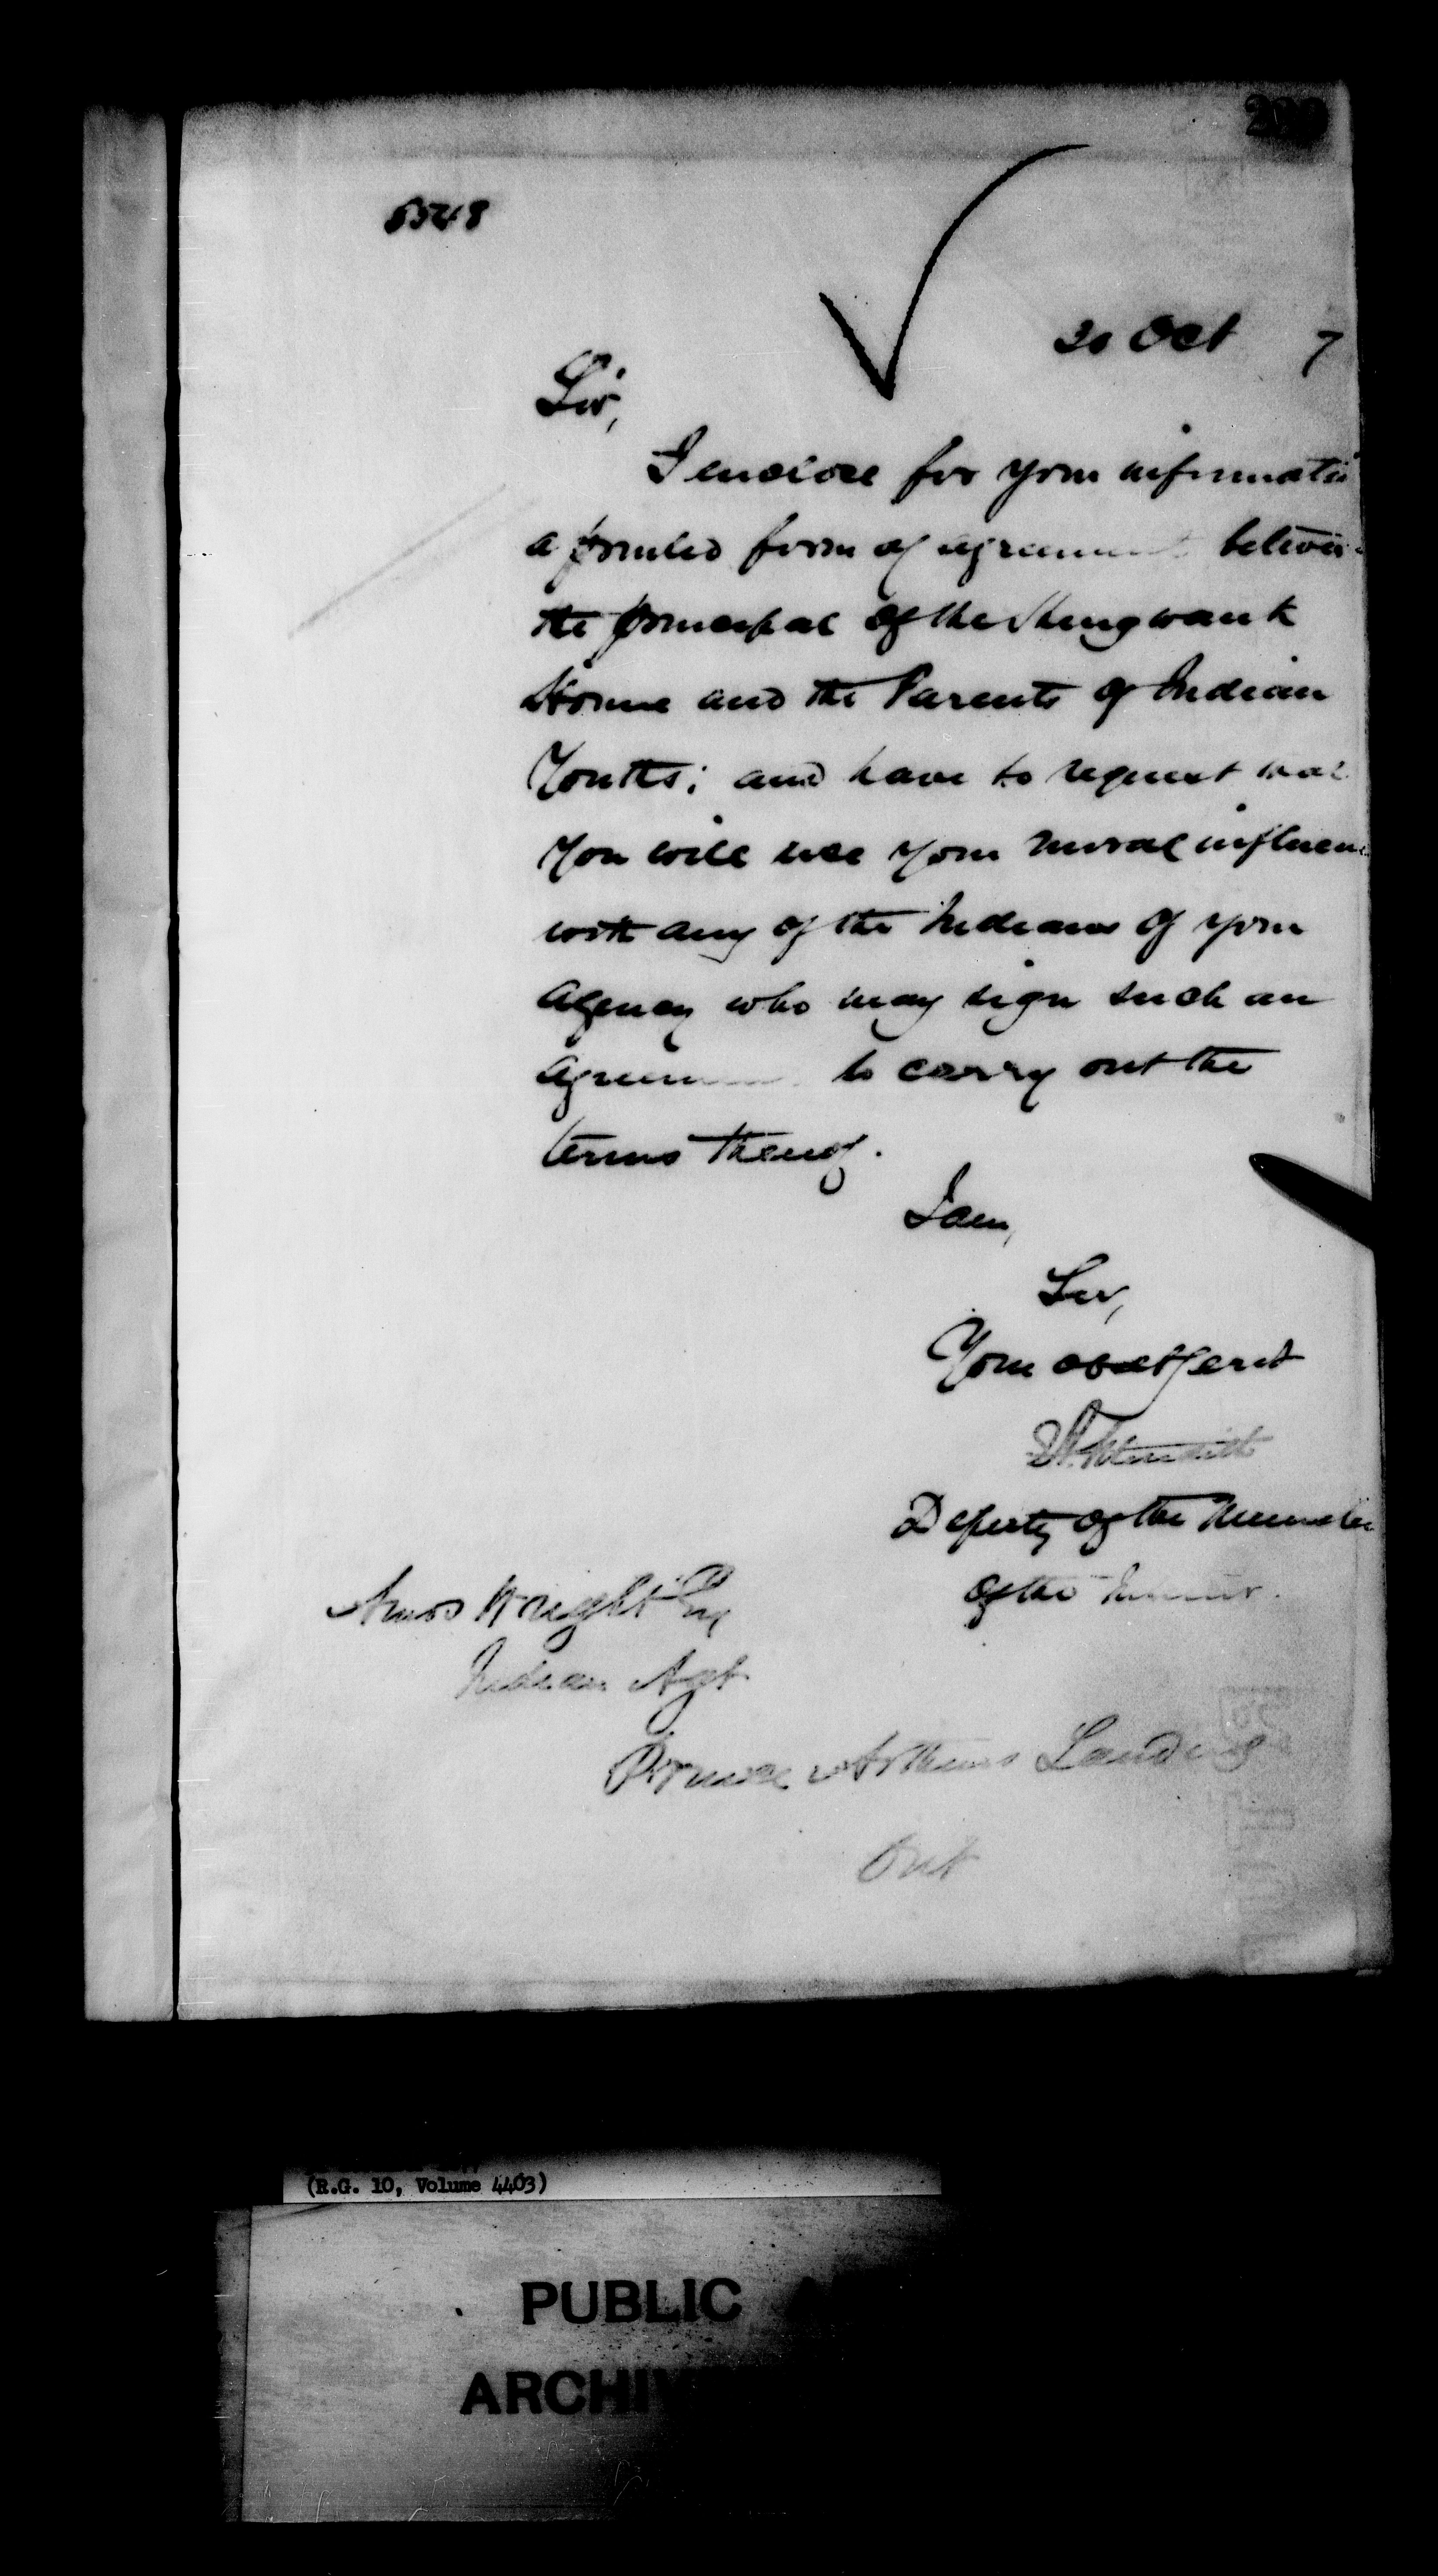 5548
30 Oct 7
Sir,
I enclose for your informatio
a printed form of agreement betwee
the principal of the Shingwauk
Home and the Parents of Indian
Youths; and have to request that
you will use your moral influen
with any of the Indians of your
agency who may sign such an
agreemen to carry out the
terms thereof.
I am,
Sir,
Your obedt Servt
Deputy of the Minister
of the Interior.
Amos Wright Esq
Indian Agt
Prince Arthurs Landing
Ont
(R.G. 10, Volume 4403)
PUBLIC
ARCHIV